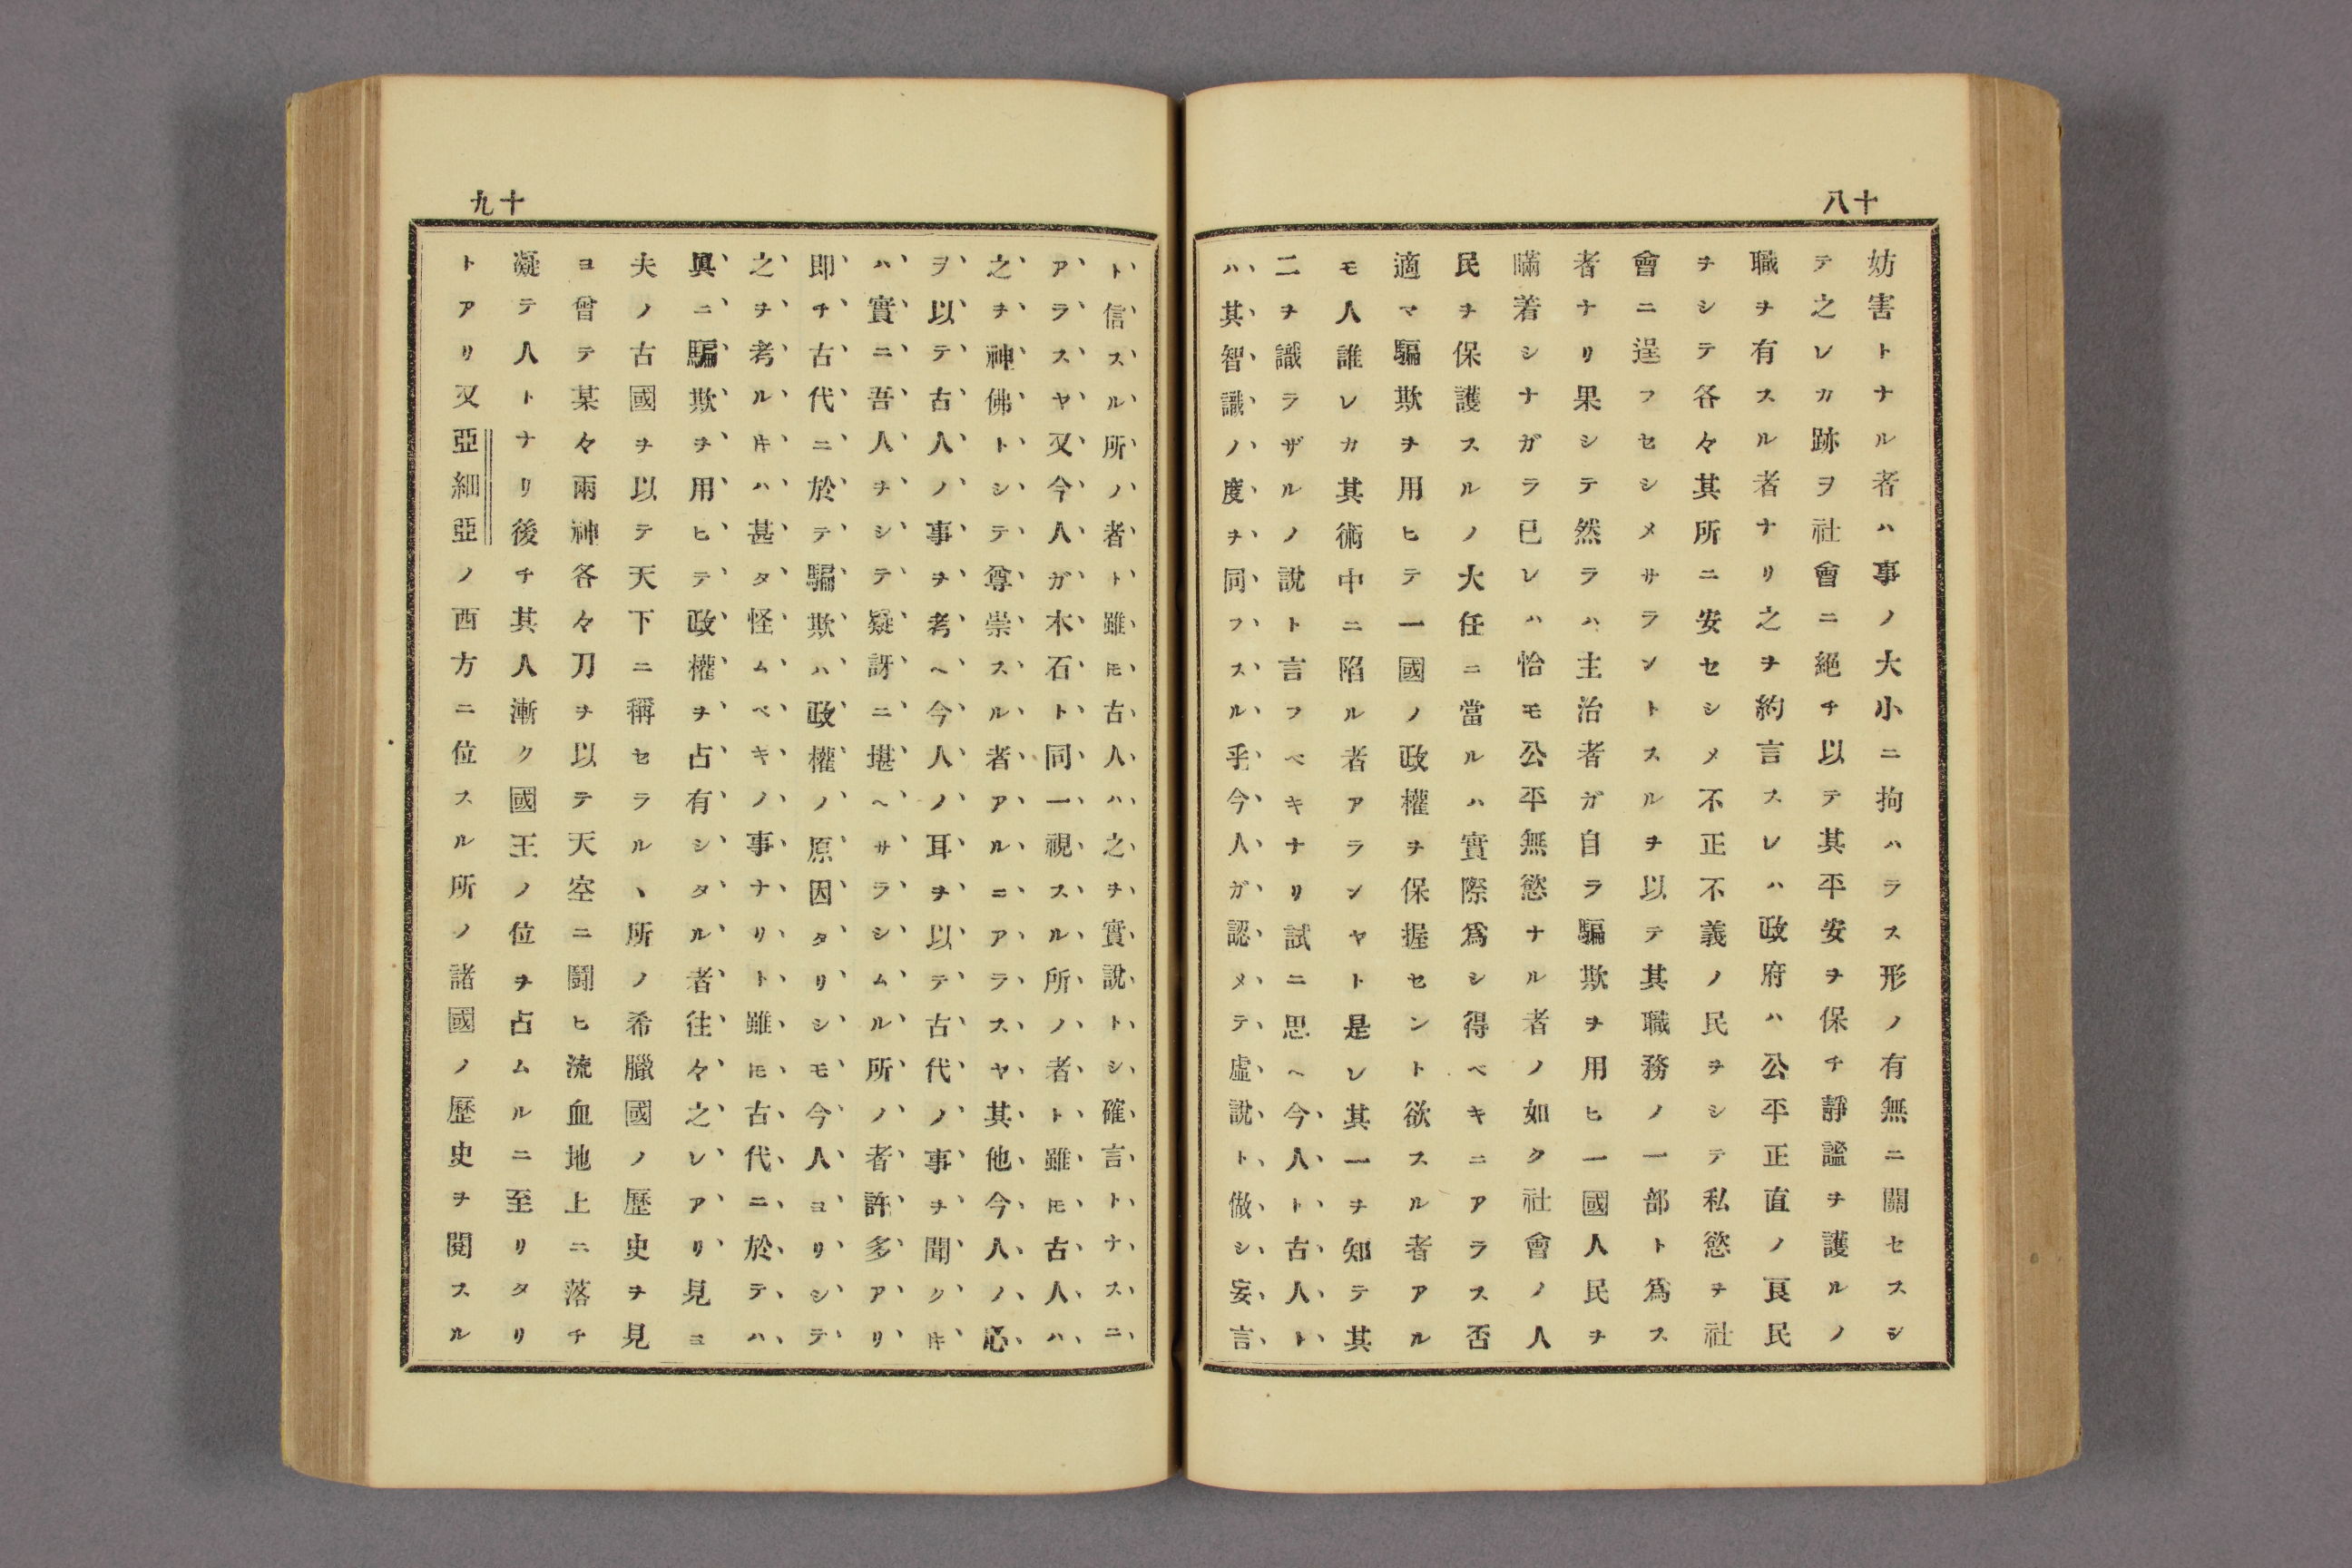 十八
妨害トナル者ハ事ノ大小ニ拘ハラス形ノ有無ニ關セスシ
テ之レカ跡ヲ社會ニ絕チ以テ其平安ヲ保チ靜謐ヲ護ルノ
職ヲ有スル者ナリ之ヲ約言スレハ政府ハ公平正直ノ良民
ヲシテ各々其所ニ安セシメ不正不義ノ民ヲシテ私慾ヲ社
會ニ逞フセシメサラントスルヲ以テ其職務ノ一部ト爲ス
者ナリ果シテ然ラハ主治者ガ自ラ騙欺ヲ用ヒ一國人民ヲ
瞞着シナガラ已レハ恰モ公平無慾ナル者ノ如ク社會ノ人
民ヲ保護スルノ大任ニ當ルハ實際爲シ得ベキニアラス否
適マ騙欺ヲ用ヒテ一國ノ政權ヲ保握セント欲スル者アル
モ人誰レカ其術中ニ陷ル者アランヤト是レ其一ヲ知テ其
二ヲ識ラザルノ說ト言フベキナリ試ニ思ヘ今人ト古人ト
ハ其智識ノ度ヲ同フスル乎今人ガ認メテ虛說ト做シ妄言
十九
ト信スル所ノ者ト雖𪜈古人ハ之ヲ實說トシ確言トナスニ
アラスヤ又今人ガ木石ト同一視スル所ノ者ト雖𪜈古人ハ
之ヲ神佛トシテ尊崇スル者アルニアラスヤ其他今人ノ心
ヲ以テ古人ノ事ヲ考ヘ今人ノ耳ヲ以テ古代ノ事ヲ聞ク𪜈
ハ實ニ吾人ヲシテ疑訝ニ堪ヘサラシムル所ノ者許多アリ
即チ古代ニ於テ騙欺ハ政權ノ原因タリシモ今人ヨリシテ
之ヲ考ル𪜈ハ甚タ怪ムベキノ事ナリト雖𪜈古代ニ於テハ
眞ニ騙欺ヲ用ヒテ政權ヲ占有シタル者往々之レアリ見ヨ
夫ノ古國ヲ以テ天下ニ稱セラルヽ所ノ希臘國ノ歷史ヲ見
ヨ曾テ某々兩神各々刀ヲ以テ天空ニ鬪ヒ流血地上ニ落チ
凝テ人トナリ後チ其人漸ク國王ノ位ヲ占ムルニ至リタリ
トアリ又亞細亞ノ西方ニ位スル所ノ諸國ノ歷史ヲ閱スル